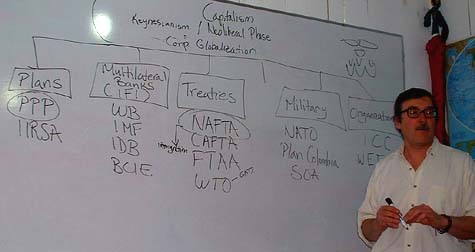 Capitalism
Keynesianism / Neoliberal Phase
- Corp Globalization
Plans
PPP
IIRSA
Multilateral
Banks
(IFI)
WB
IMF
IDB
BCIE
Treaties
NAFTA
CAFTA
FTAA
WTO
Military
NATO
Plan Colombia
SOA
ICC